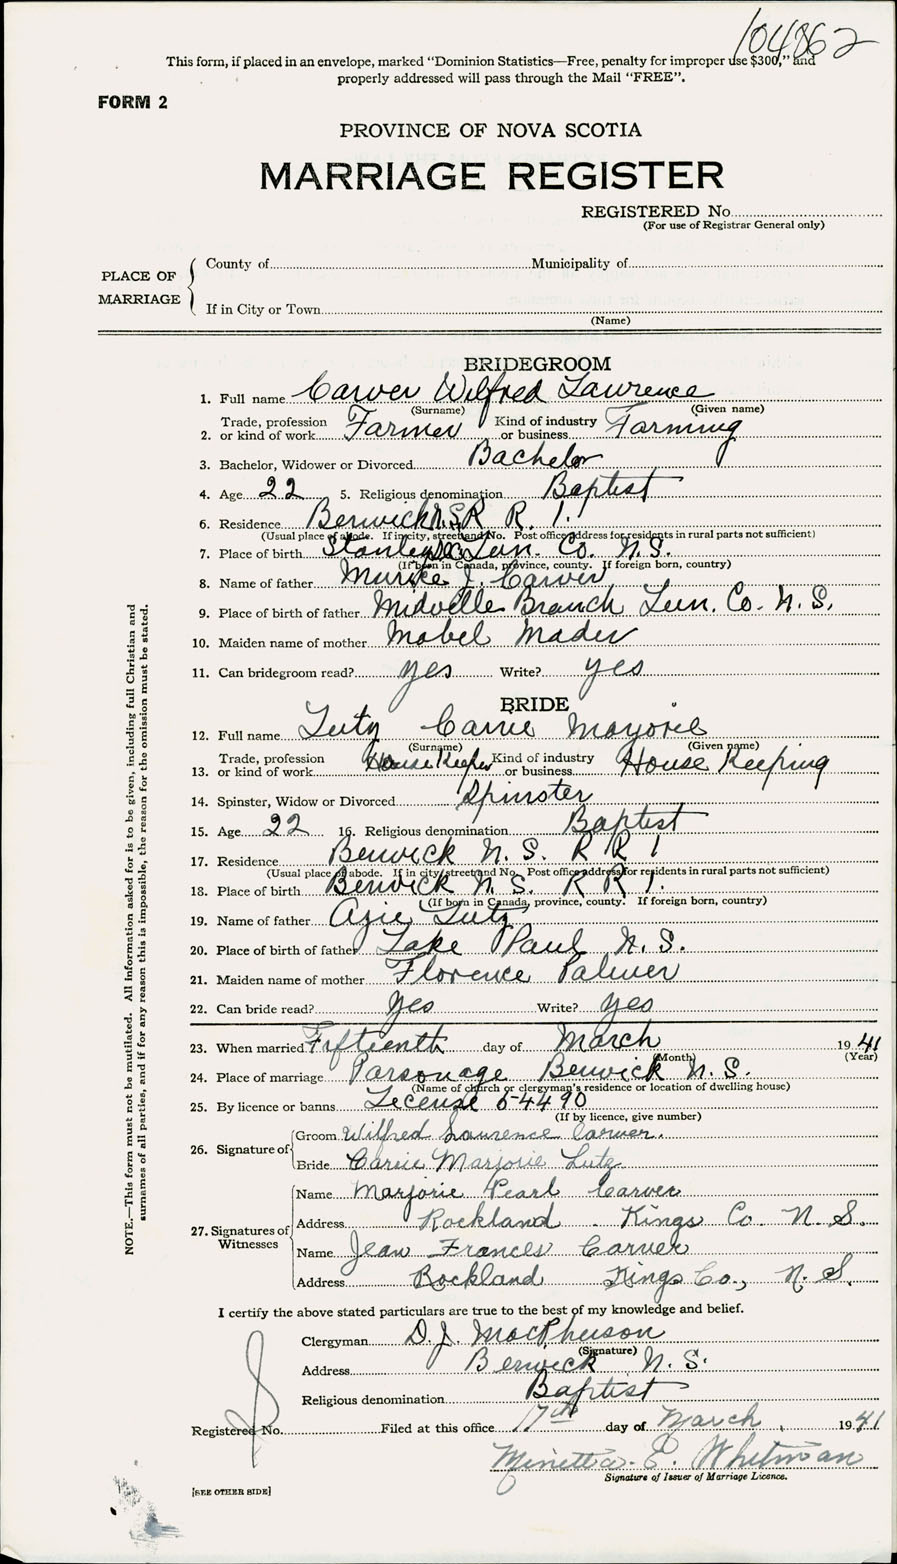 104862
This form, if placed in an envelope, marked "Dominion Statistics—Free, penalty for improper use $300," and
properly addressed will pass through the Mail "FREE".
FORM 2
PROVINCE OF NOVA SCOTIA
MARRIAGE REGISTER
REGISTERED No.
(For use of Registrar General only)
PLACE OF MARRIAGE
County of Municipality of
If in City or Town
(Name)
BRIDEGROOM
1. Full name Carver Wilfred Lawrence
(Surname) (Given name)
2. Trade, profession or kind of work Farmer Kind of industry or business Farming
3. Bachelor, Widower or Divorced Bachelor
4. Age 22 5. Religious denomination Baptist
6. Residence Berwick N.S. R R. 1.
(Usual place of abode. If in city, street and No. Post office address for residents in rural parts not sufficient)
7. Place of birth Lun. Co. N.S.
(If born in Canada, province, county. If foreign born, country)
8. Name of father J. Carver
9. Place of birth of father Midville Branch Lun. Co. N.S.
10. Maiden name of mother Mabel Mader
11. Can bridegroom read? yes Write? yes
BRIDE
12. Full name Lutz Carrie Marjorie
(Surname) (Given name)
13. Trade, profession or kind of work House Keeper Kind of industry or business House Keeping
14. Spinster, Widow or Divorced Spinster
15. Age 22 16. Religious denomination Baptist
17. Residence Berwick N. S. R R 1
(Usual place of abode. If in city street and No. Post office address for residents in rural parts not sufficient)
18. Place of birth Berwick N. S. R R 1.
(If born in Canada, province, county. If foreign born, country)
19. Name of father Lutz
20. Place of birth of father Lake Paul N. S.
21. Maiden name of mother Florence Palmer
22. Can bride read? yes Write? yes
23. When married Fifteenth day of March 1941
(Month) (Year)
24. Place of marriage Parsonage Berwick N. S.
(Name of church or clergyman's residence or location of dwelling house)
25. By licence or banns License 54490
(If by licence, give number)
26. Signature of
Groom Wilfred Lawrence Carver.
Bride Carrie Marjorie Lutz
27. Signatures of Witnesses
Name Marjorie Pearl Carver
Address Rockland . Kings Co. N. S.
Name Jean Frances Carver
Address Rockland Kings Co., N. S.
I certify the above stated particulars are true to the best of my knowledge and belief.
Clergyman D. J. MacPherson
(Signature)
Address Berwick N. S.
Religious denomination Baptist
Registered No. Filed at this office 17th day of March, 1941
Minetta E. Whitman
Signature of Issuer of Marriage Licence.
[SEE OTHER SIDE]
NOTE.—This form must not be mutilated. All information asked for is to be given, including full Christian and
surnames of all parties, and if for any reason this is impossible, the reason for the omission must be stated.